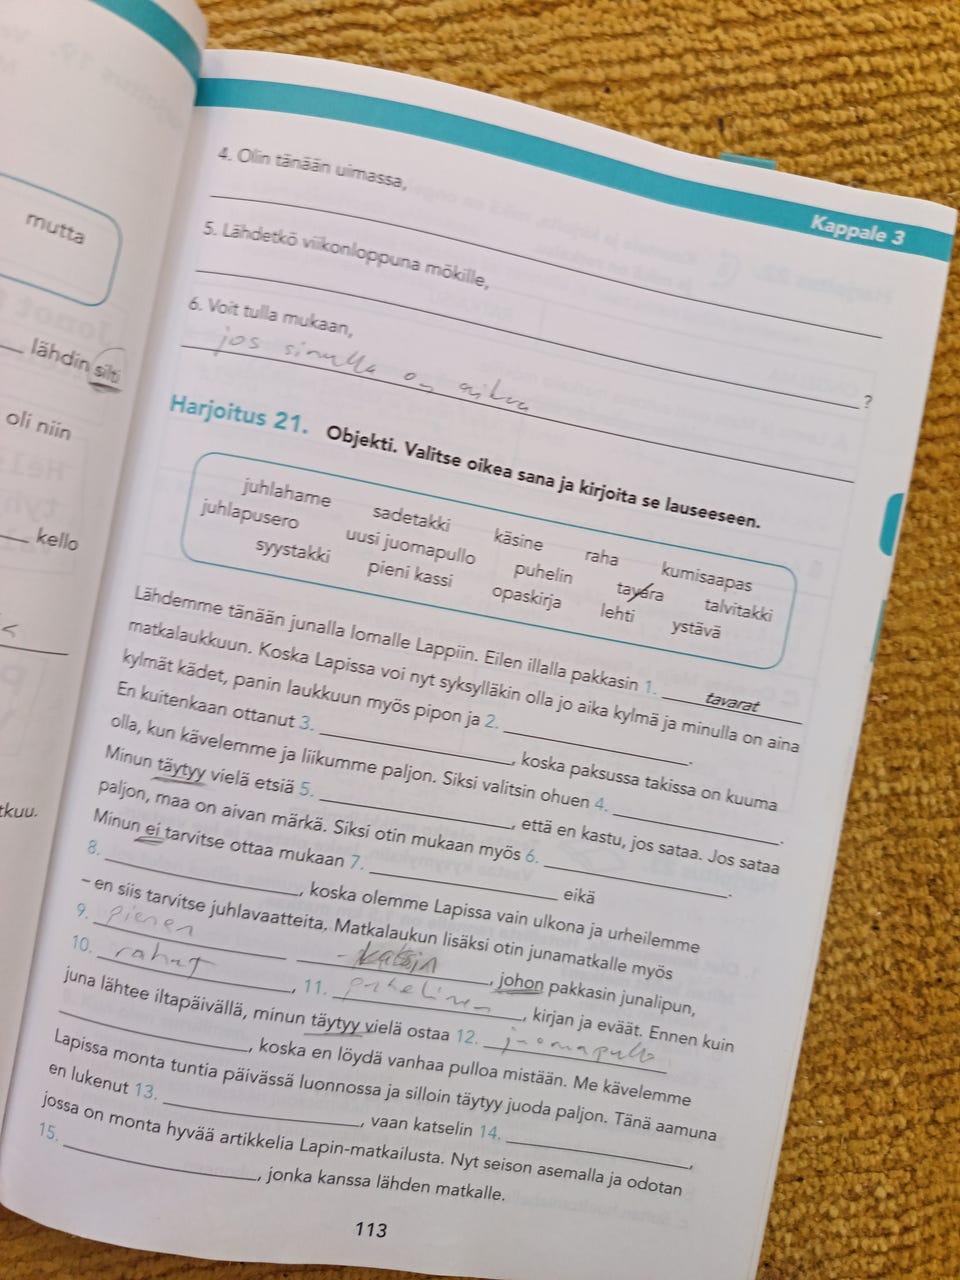 mutta
lähdin silti
oli niin
kello
tkuu.
Kappale 3
4. Olin tänään uimassa,
5. Lähdetkö viikonloppuna mökille,
?
6. Voit tulla mukaan,
jos sinulla on aikaa
Harjoitus 21. Objekti. Valitse oikea sana ja kirjoita se lauseeseen.
juhlahame sadetakki käsine raha kumisaapas
juhlapusero uusi juomapullo puhelin tavara talvitakki
syystakki pieni kassi opaskirja lehti ystävä
Lähdemme tänään junalla lomalle Lappiin. Eilen illalla pakkasin 1. tavarat
matkalaukkuun. Koska Lapissa voi nyt syksylläkin olla jo aika kylmä ja minulla on aina
kylmät kädet, panin laukkuun myös pipon ja 2. .
En kuitenkaan ottanut 3. , koska paksussa takissa on kuuma
olla, kun kävelemme ja liikumme paljon. Siksi valitsin ohuen 4. .
Minun täytyy vielä etsiä 5. , että en kastu, jos sataa. Jos sataa
paljon, maa on aivan märkä. Siksi otin mukaan myös 6. .
Minun ei tarvitse ottaa mukaan 7. eikä
8. , koska olemme Lapissa vain ulkona ja urheilemme
– en siis tarvitse juhlavaatteita, Matkalaukun lisäksi otin junamatkalle myös
9. pienen kassin, johon pakkasin junalipun,
10. rahat, 11. puhelimen, kirjan ja eväät. Ennen kuin
juna lähtee iltapäivällä, minun täytyy vielä ostaa 12. juomapullo
, koska en löydä vanhaa pulloa mistään. Me kävelemme
Lapissa monta tuntia päivässä luonnossa ja silloin täytyy juoda paljon. Tänä aamuna
en lukenut 13. , vaan katselin 14. ,
jossa on monta hyvää artikkelia Lapin-matkailusta. Nyt seison asemalla ja odotan
15. , jonka kanssa lähden matkalle.
113